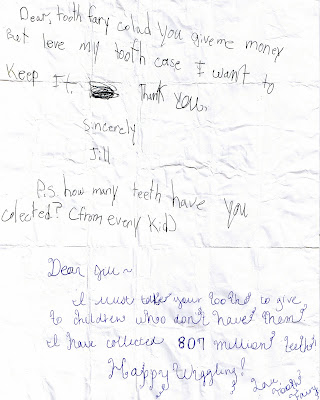 Dear, tooth fary colad you giveme money
But leve my tooth case I want to
Keep It. Thank you.
Sincerely
Jill
P.s. how many teeth have you
colected? (from every Kid)
Dear Jill ~
I must take your tooth to give
to children who don't have them.
I have collected 807 million teeth
Happy Wiggling!
Love, Tooth Fairy